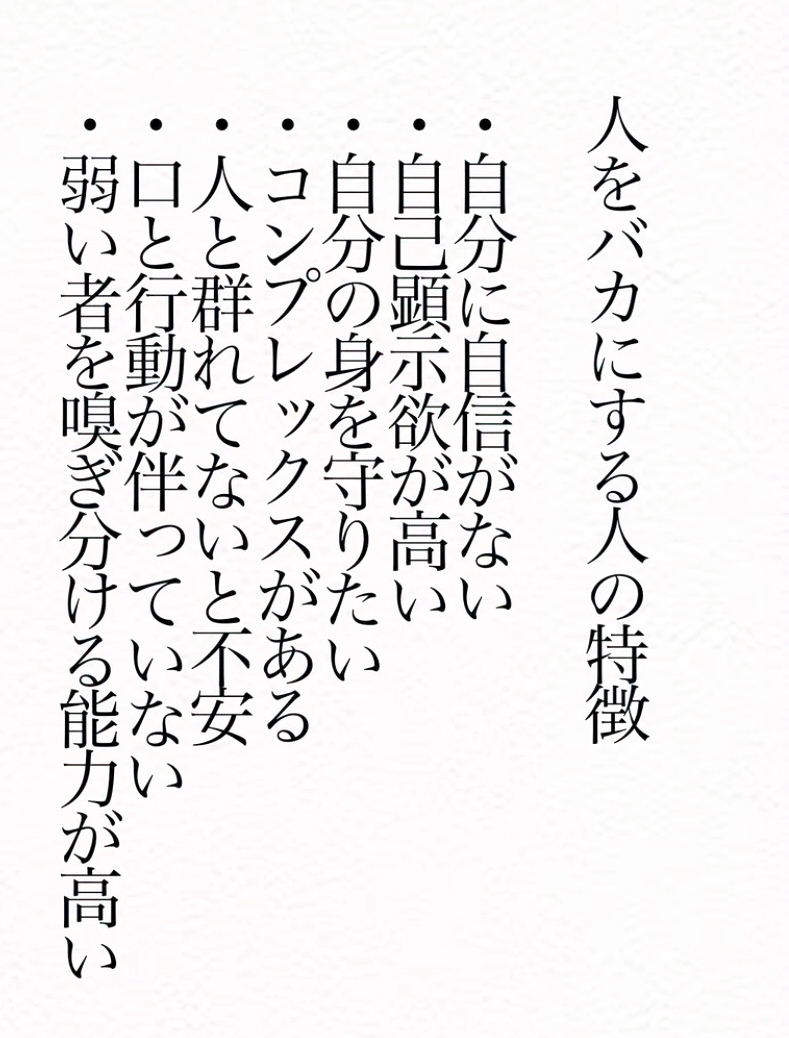 人をバカにする人の特徴
・自分に自信がない
・自己顕示欲が高い
・自分の身を守りたい
・コンプレックスがある
・人と群れてないと不安
・口と行動が伴っていない
・弱い者を嗅ぎ分ける能力が高い